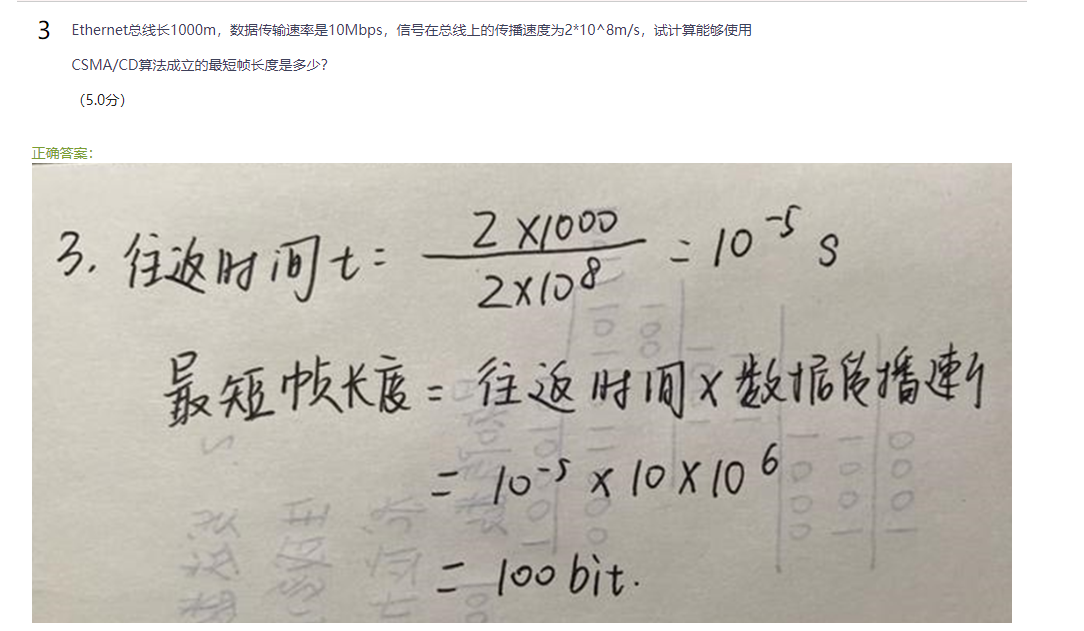 3 Ethernet总线长1000m，数据传输速率是10Mbps，信号在总线上的传播速度为2*10^8m/s，试计算能够使用
CSMA/CD算法成立的最短帧长度是多少？
（5.0分）
正确答案：
3. 往返时间t = 2×1000 / 2×10^8 = 10^-5 s
最短帧长度 = 往返时间×数据传播速
= 10^-5 × 10 × 10^6
= 100 bit.